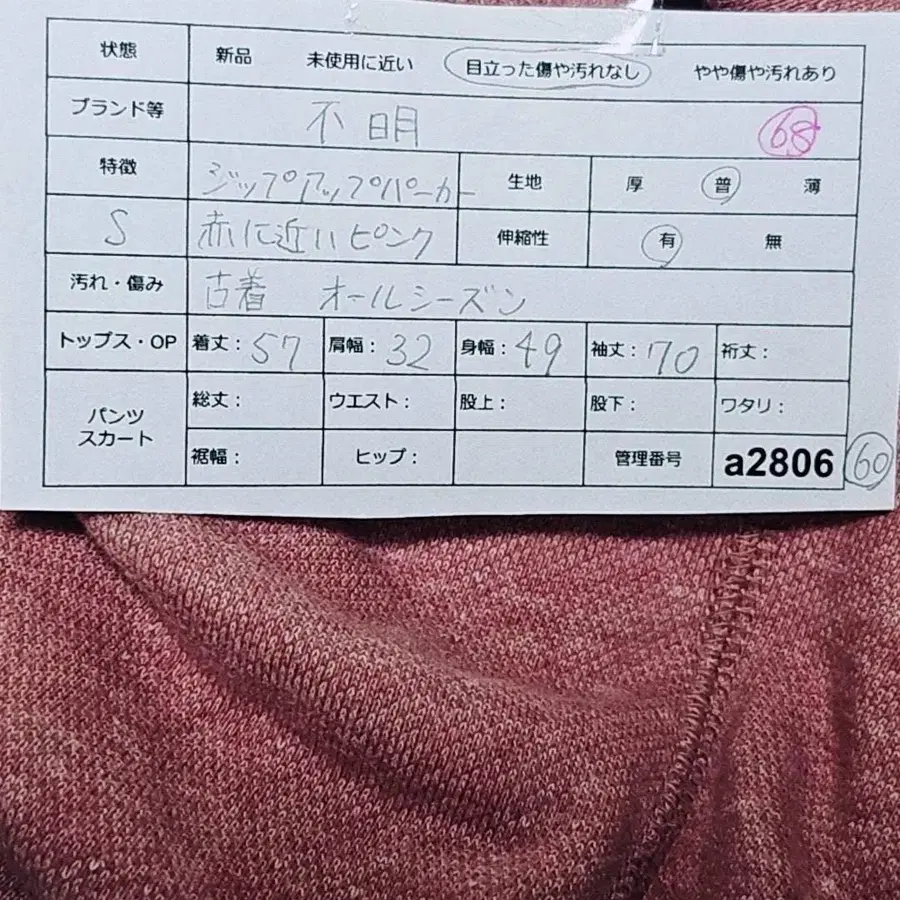 状態 新品 未使用に近い 目立った傷や汚れなし やや傷や汚れあり
ブランド等 不明 68
特徴 ジップアップパーカー 生地 厚 普 薄
S 赤に近いピンク 伸縮性 有 無
汚れ・傷み 古着 オールシーズン
トップス・OP 着丈：57 肩幅：32 身幅：49 袖丈：70 裄丈：
パンツ スカート 総丈： ウエスト： 股上： 股下： ワタリ：
裾幅： ヒップ： 管理番号 a2806 60